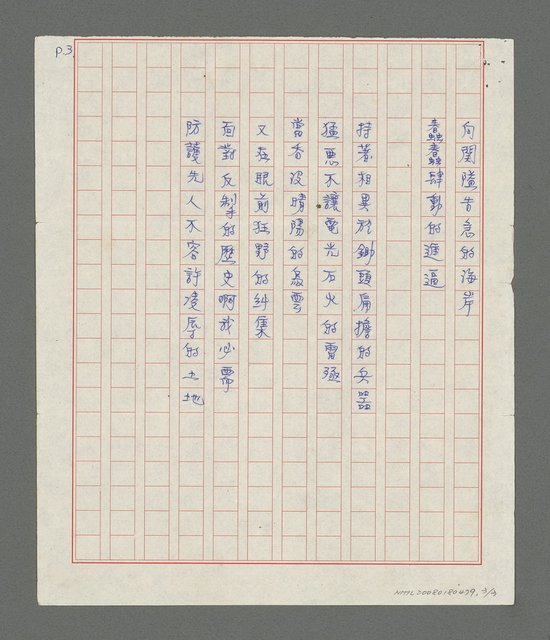 P.3
向關隘告急的海岸
蠢蠢肆動的進逼
持著相異於鋤頭扁擔的兵器
猛悪不讓電光石火的雷殛
當吞沒晴陽的烏雲
又在眼前狂野的糾集
面對反掣的歷史啊我必需
防護先人不容許凌辱的土地
NMTL20080180479, 3/3